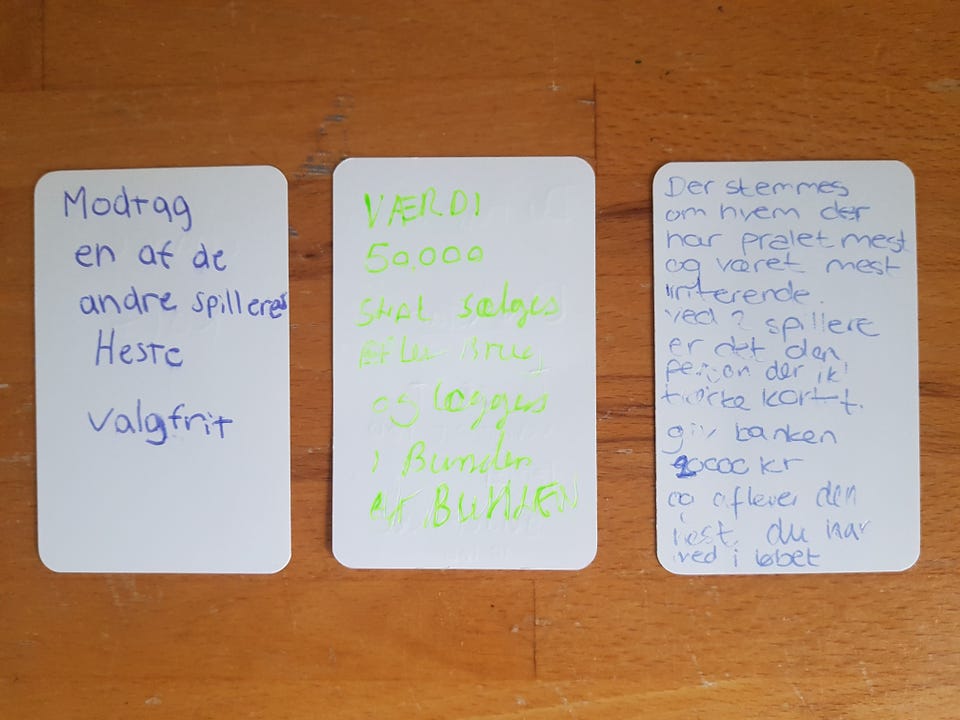 Modtag
en af de
andre spilleres
Heste
valgfrit
VÆRDI
50,000
SKAL sælges
Efter Brug
og lægges
i Bunden
AF BUNKEN
Der stemmes
om hvem der
har pralet mest
og været mest
irriterende.
ved 2 spillere
er det den
person der ik'
trækker kortet.
giv banken
kr
og aflever den
hest du har
med i løbet